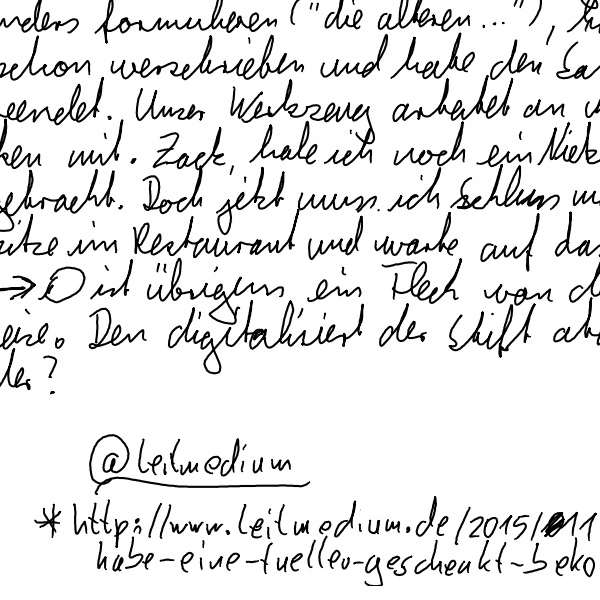 nders formulieren ("die älteren..."),
schon verschrieben und habe den Sa
eendet. Unser Werkzeug arbeitet an u
ken mit. Zack, habe ich noch ein Nietz
gebracht. Doch jetzt muss ich Schluss m
sitze im Restaurant und warte auf das
→ O ist übrigens ein Fleck von d
eise. Den digitalisiert der Stift ab
der?
@leitmedium
* http://www.leitmedium.de/2015/11
habe-eine-fueller-geschenkt-beko